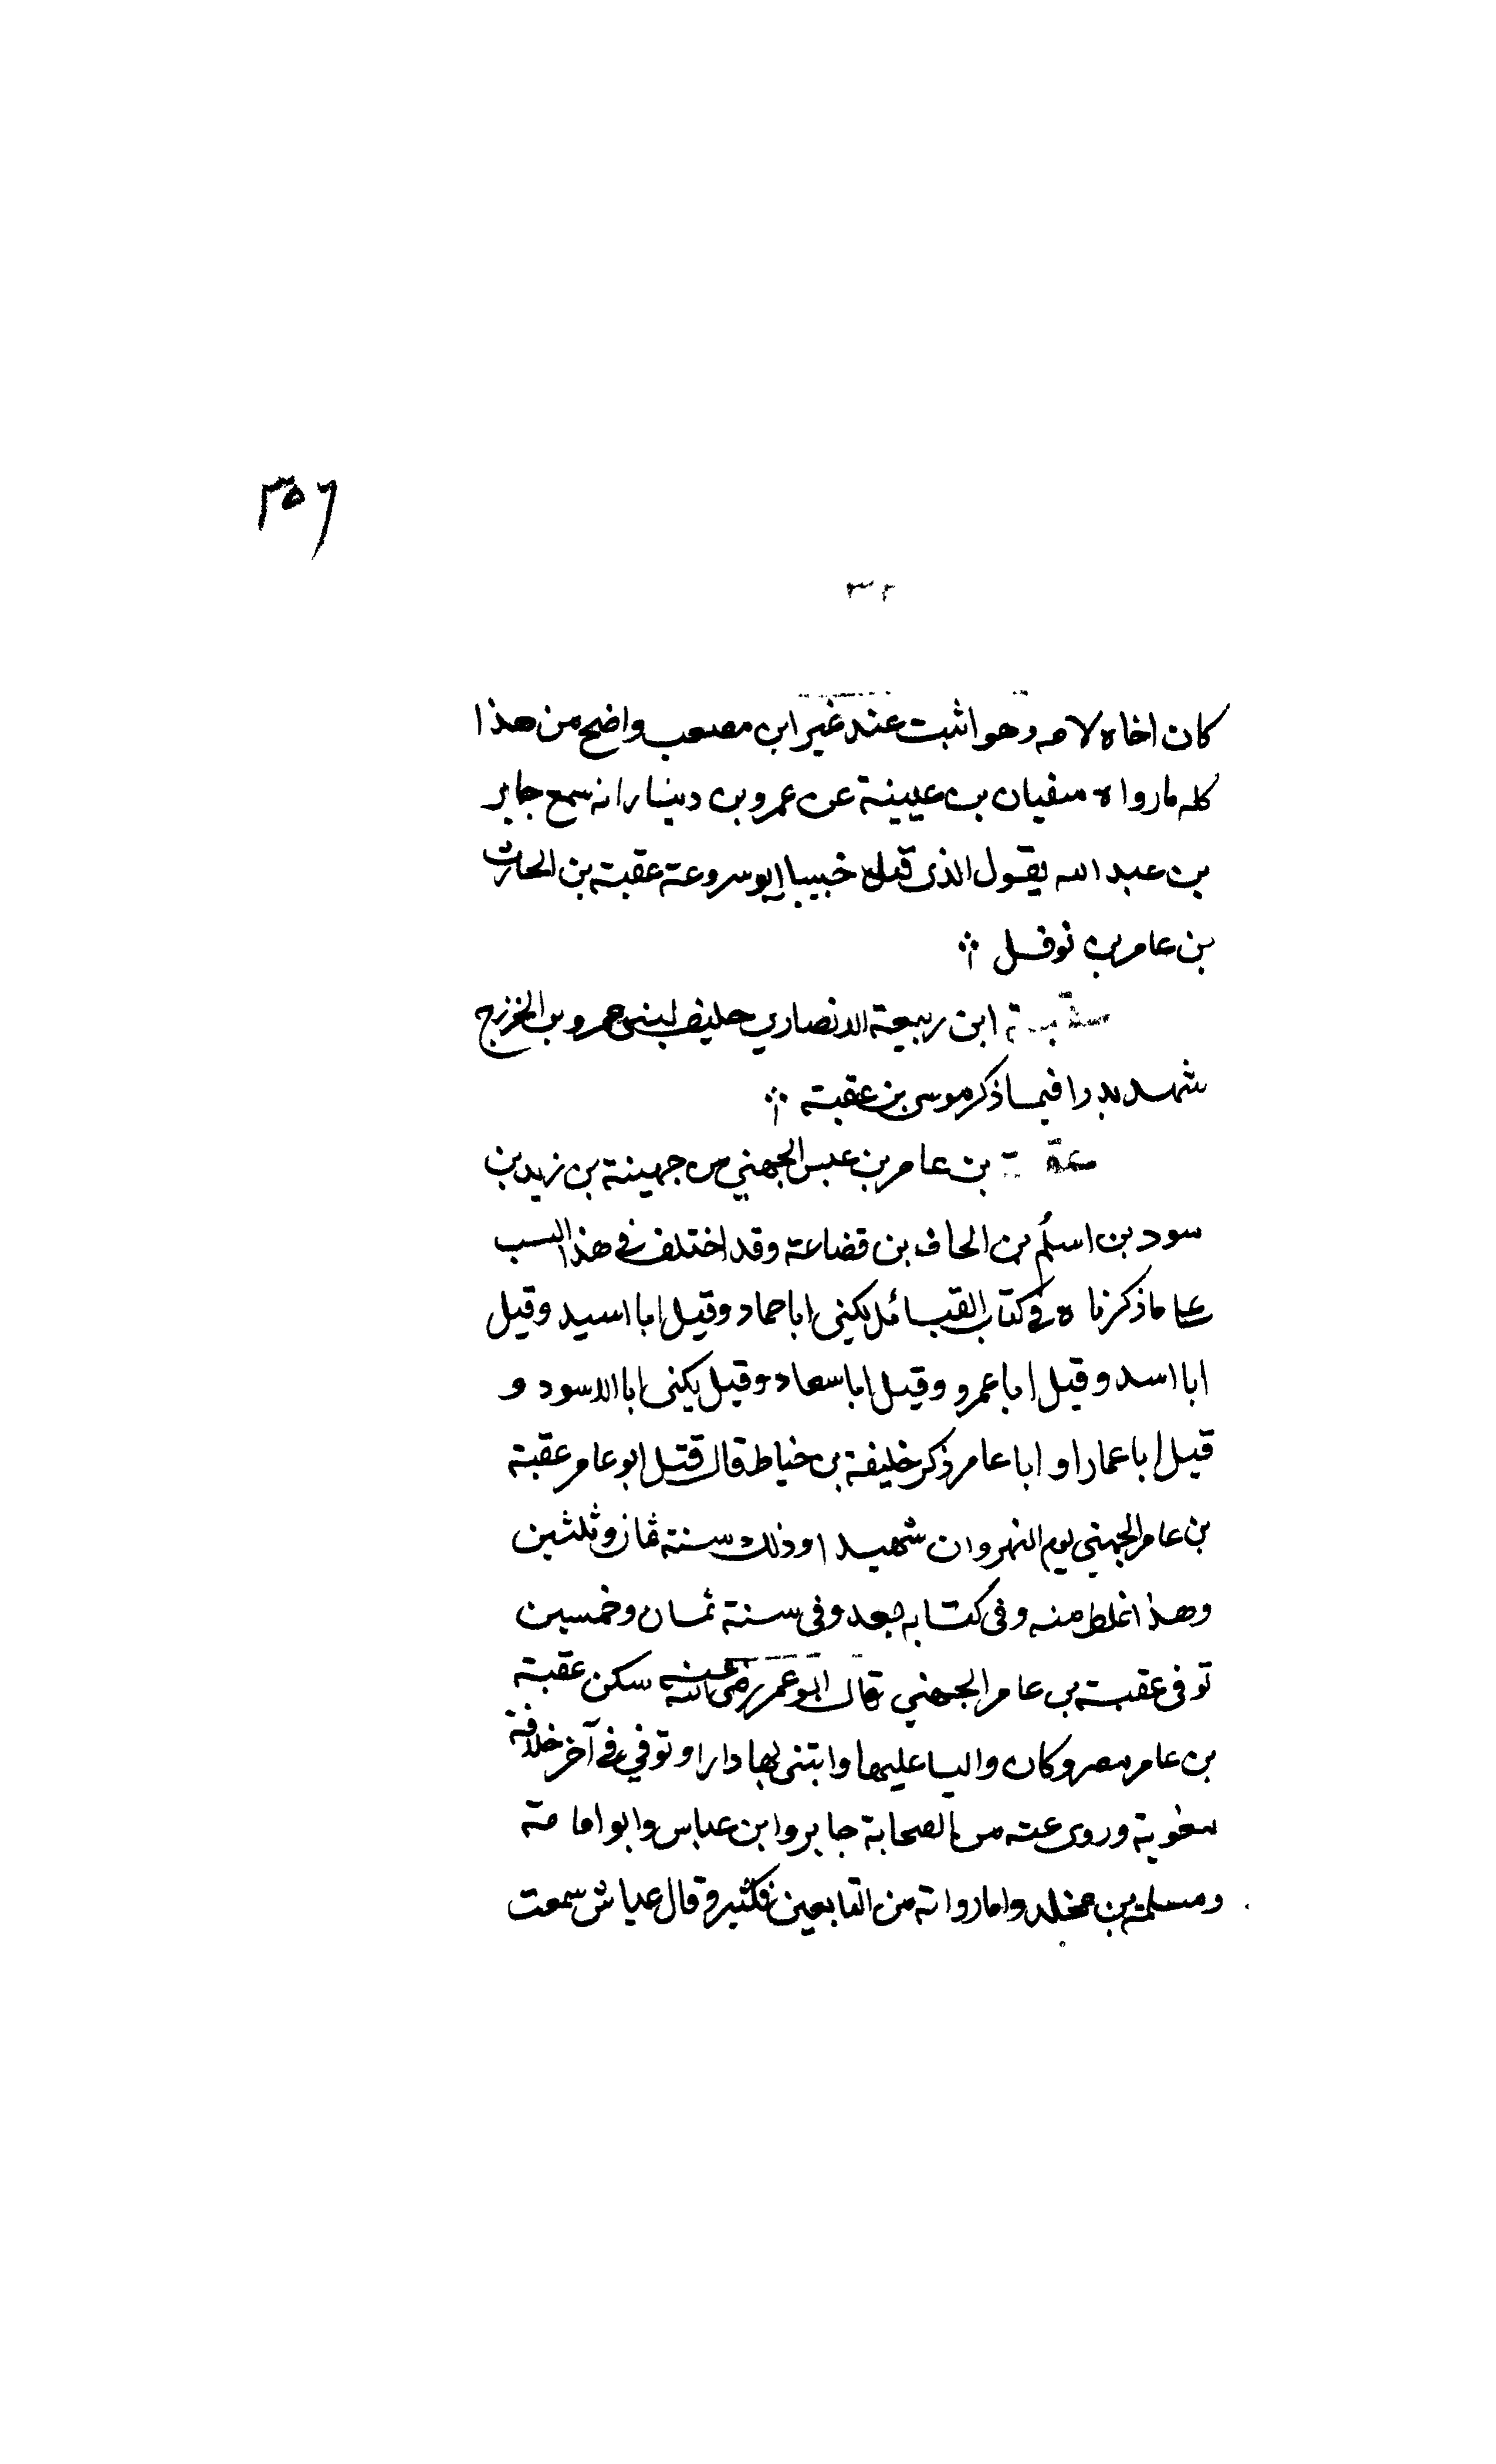 ٣٥٦
٣٢
كان اخاه لامه وهو اثبت عند غير ابن مصعب واضح من هذا
كله ما رواه سفيان بن عيينة عن عمرو بن دينار انه سمع جابر
بن عبد الله يقول الذى قتل خبيبا ابو سروعة عقبة بن الحارث
بن عامر بن نوفل
عقبة ابن ربيعة الانصاري حليف لبنى عمرو بن الخزرج
شهد بدرا فيما ذكر موسى بن عقبة
عقبة بن عامر بن عبس الجهني من جهينة بن زيد بن
سود بن اسلم بن الحاف بن قضاعة وقد اختلف في هذا النسب
على ما ذكرناه في كتاب القبائل يكنى ابا حماد وقيل ابا اسيد وقيل
ابا اسد وقيل ابا عمرو وقيل ابا سعاد وقيل يكنى ابا الاسود و
قيل ابا عمار او ابا عامر ذكر خليفة بن خياط قال قتل ابو عامر عقبة
بن عامر الجهني يوم النهروان شهيدا وذلك سنة ثمان وثلثين
وهذا غلط منه وفى كتابه بعد وفى سنة ثمان وخمسين
توفى عقبة بن عامر الجهني قال ابو عمر رضى الله عنه سكن عقبة
بن عامر مصر وكان واليا عليها وابتنى بها دارا وتوفي في آخر خلافة
معوية وروى عنه من الصحابة جابر وابن عباس وابو امامة
ومسلمة بن مخلد واما رواته من التابعين فكثير وقال عباش سمعت